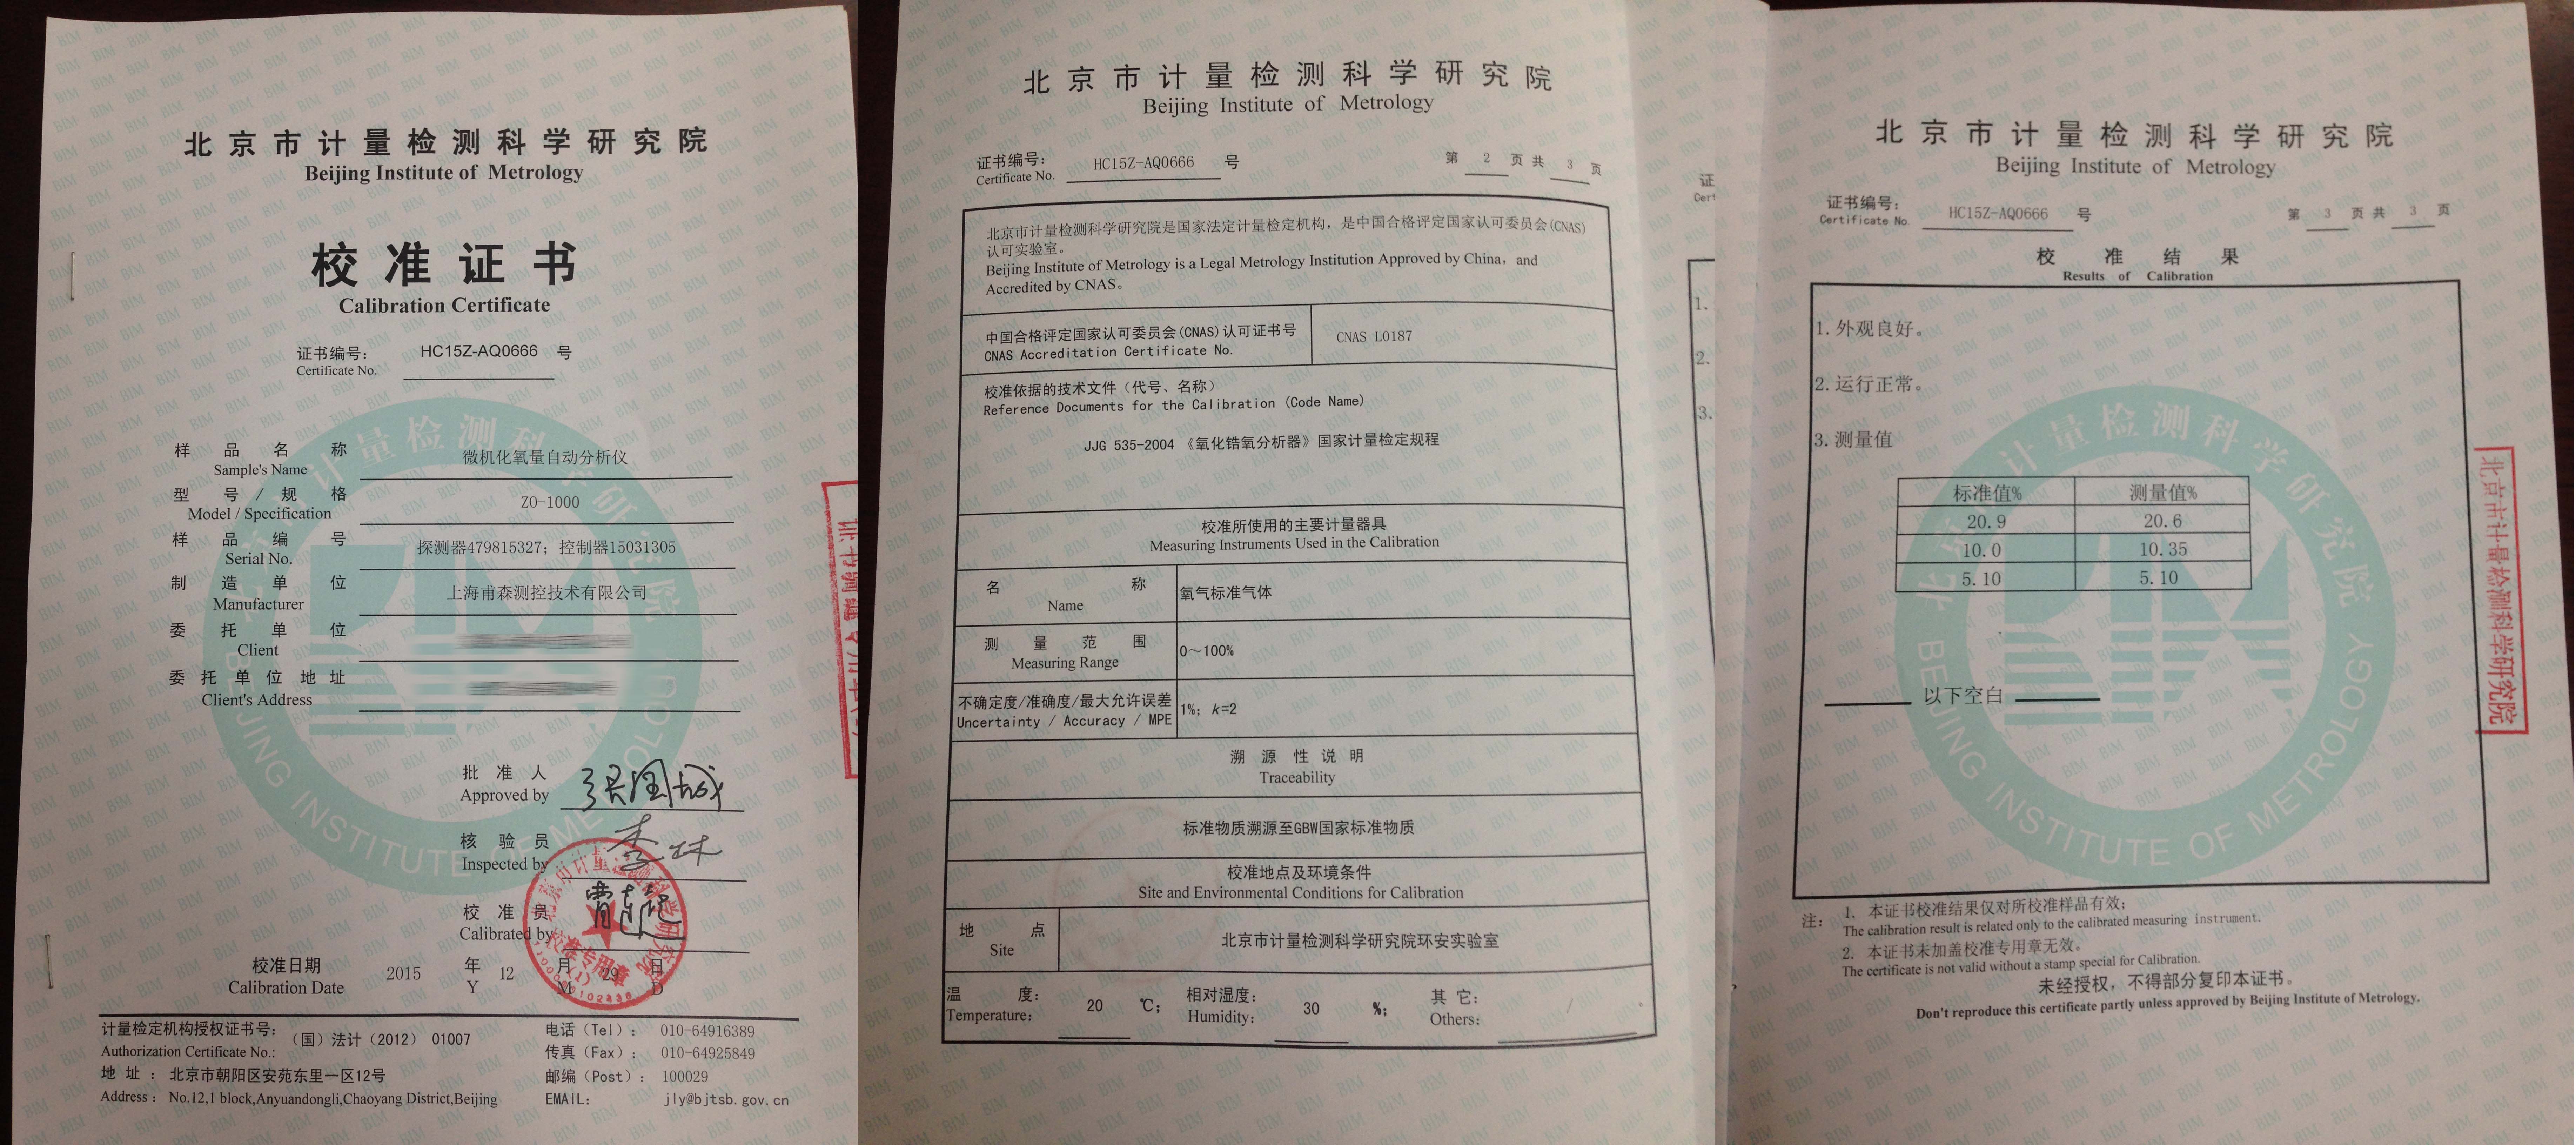 北京市计量检测科学研究院
Beijing Institute of Metrology
校准证书
Calibration Certificate
证书编号: HC15Z-AQ0666 号
Certificate No.
样品名称 微机化氧量自动分析仪
Sample's Name
型号/规格 ZO-1000
Model / Specification
样品编号 探测器479815327; 控制器15031305
Serial No.
制造单位 上海甫森测控技术有限公司
Manufacturer
委托单位
Client
委托单位地址
Client's Address
批准人
Approved by
核验员
Inspected by
校准员
Calibrated by
校准专用章
(1)
校准日期 2015 年 12 月 29 日
Calibration Date Y M D
计量检定机构授权证书号: (国)法计(2012) 01007
Authorization Certificate No.:
地址: 北京市朝阳区安苑东里一区12号
Address: No.12,1 block,Anyuandongli,Chaoyang District,Beijing
电话(Tel): 010-64916389
传真(Fax): 010-64925849
邮编(Post): 100029
EMAIL: jly@bjtsb.gov.cn
北京市计量检测科学研究院
Beijing Institute of Metrology
证书编号: HC15Z-AQ0666 号 第 2 页共 3 页
Certificate No.
北京市计量检测科学研究院是国家法定计量检定机构,是中国合格评定国家认可委员会(CNAS)
认可实验室。
Beijing Institute of Metrology is a Legal Metrology Institution Approved by China, and
Accredited by CNAS。
中国合格评定国家认可委员会(CNAS)认可证书号 CNAS L0187
CNAS Accreditation Certificate No.
校准依据的技术文件(代号、名称)
Reference Documents for the Calibration (Code Name)
JJG 535-2004 《氧化锆氧分析器》国家计量检定规程
校准所使用的主要计量器具
Measuring Instruments Used in the Calibration
名称 氧气标准气体
Name
测量范围 0~100%
Measuring Range
不确定度/准确度/最大允许误差 1%; k=2
Uncertainty / Accuracy / MPE
溯源性说明
Traceability
标准物质溯源至GBW国家标准物质
校准地点及环境条件
Site and Environmental Conditions for Calibration
地点 北京市计量检测科学研究院环安实验室
Site
温度: 20 ℃; 相对湿度: 30 %; 其它: /
Temperature: Humidity: Others:
证
Cert
1.
2.
3.
北京市计量检测科学研究院
Beijing Institute of Metrology
证书编号: HC15Z-AQ0666 号 第 3 页共 3 页
Certificate No.
校准结果
Results of Calibration
1.外观良好。
2.运行正常。
3.测量值
标准值% 测量值%
20.9 20.6
10.0 10.35
5.10 5.10
以下空白
北京市计量检测科学研究院
BEIJING INSTITUTE OF METROLOGY
北京市计量检测科学研究院
注: 1. 本证书校准结果仅对所校准样品有效;
The calibration result is related only to the calibrated measuring instrument.
2. 本证书未加盖校准专用章无效。
The certificate is not valid without a stamp special for Calibration.
未经授权,不得部分复印本证书。
Don't reproduce this certificate partly unless approved by Beijing Institute of Metrology.